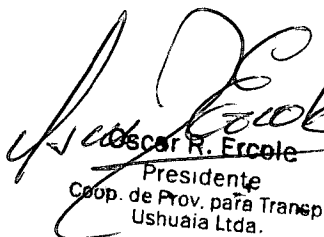 Oscar R. Ercole
Presidente
Coop. de Prov. para Transp
Ushuaia Ltda.